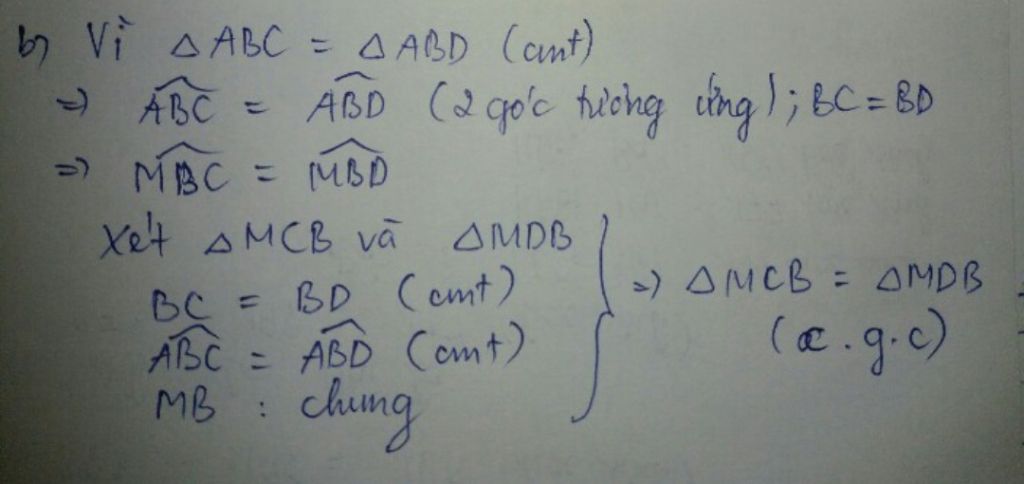 b, Vì △ABC = △ABD (cmt)
=> ABC = ABD (2 góc tương ứng); BC = BD
=> MBC = MBD
Xét △MCB và △MDB
BC = BD (cmt)
ABC = ABD (cmt)
MB : chung
=> △MCB = △MDB
(c.g.c)